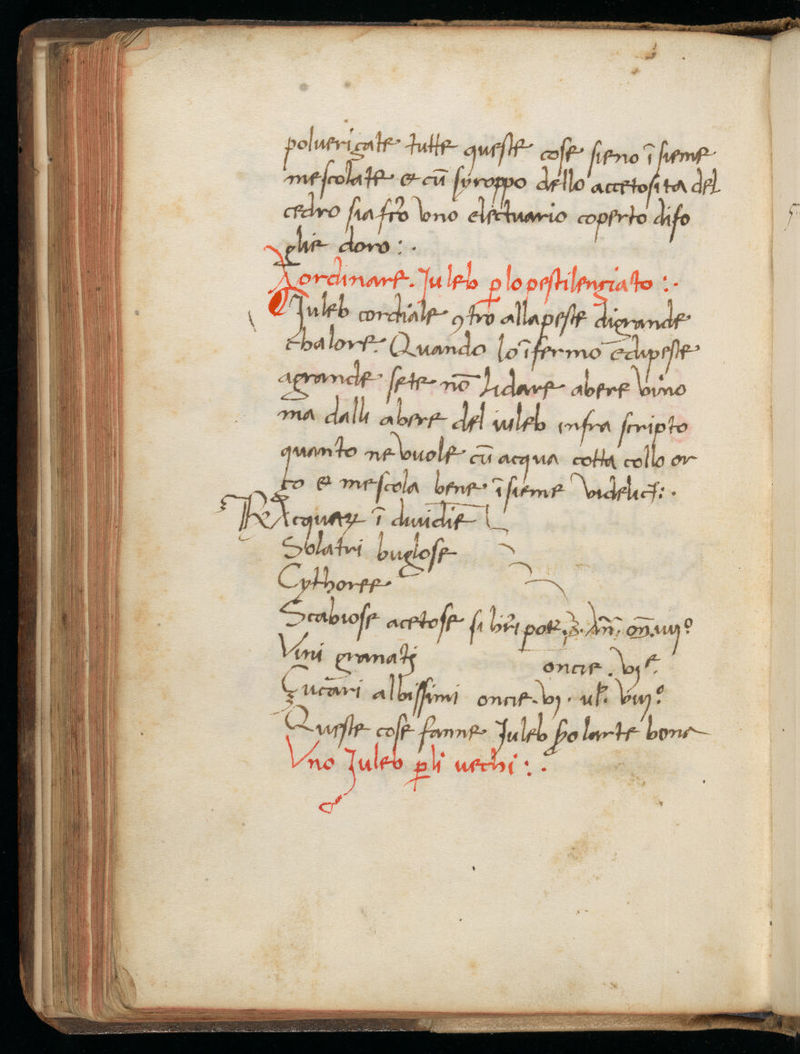 polverizate tutte queste cose sieno ī sieme
mescolate & cū syroppo dello accetosita del
cedro sia fc̄o vno electuario coperto di fo
glie doro : .
A ordinare. Iuleb ꝑ lo pestilenziato : .
Iuleb cordiale ꝯtro alla peste di grande
chalore. Quando lo īfermo e di peste
a grande sete nō li dare a bere vino
ma dalli a bere del iuleb infra scripto
quanto ne vuole cū acqua cotta collo or
zo & mescola bene ī sieme videlicꝫ : .
℞ Acquaꝝ ī diuidie
Solatri buglose
Cythoree
Scabiose acetose si hr̄i pot̄
Vini granati oncie . vj ͤ.
Zuccari albissimi oncie . vj . ul̄. viij º
Queste cose fanne Iuleb ꝓ larte bene
Vno Iuleb ꝑ li vechi : .